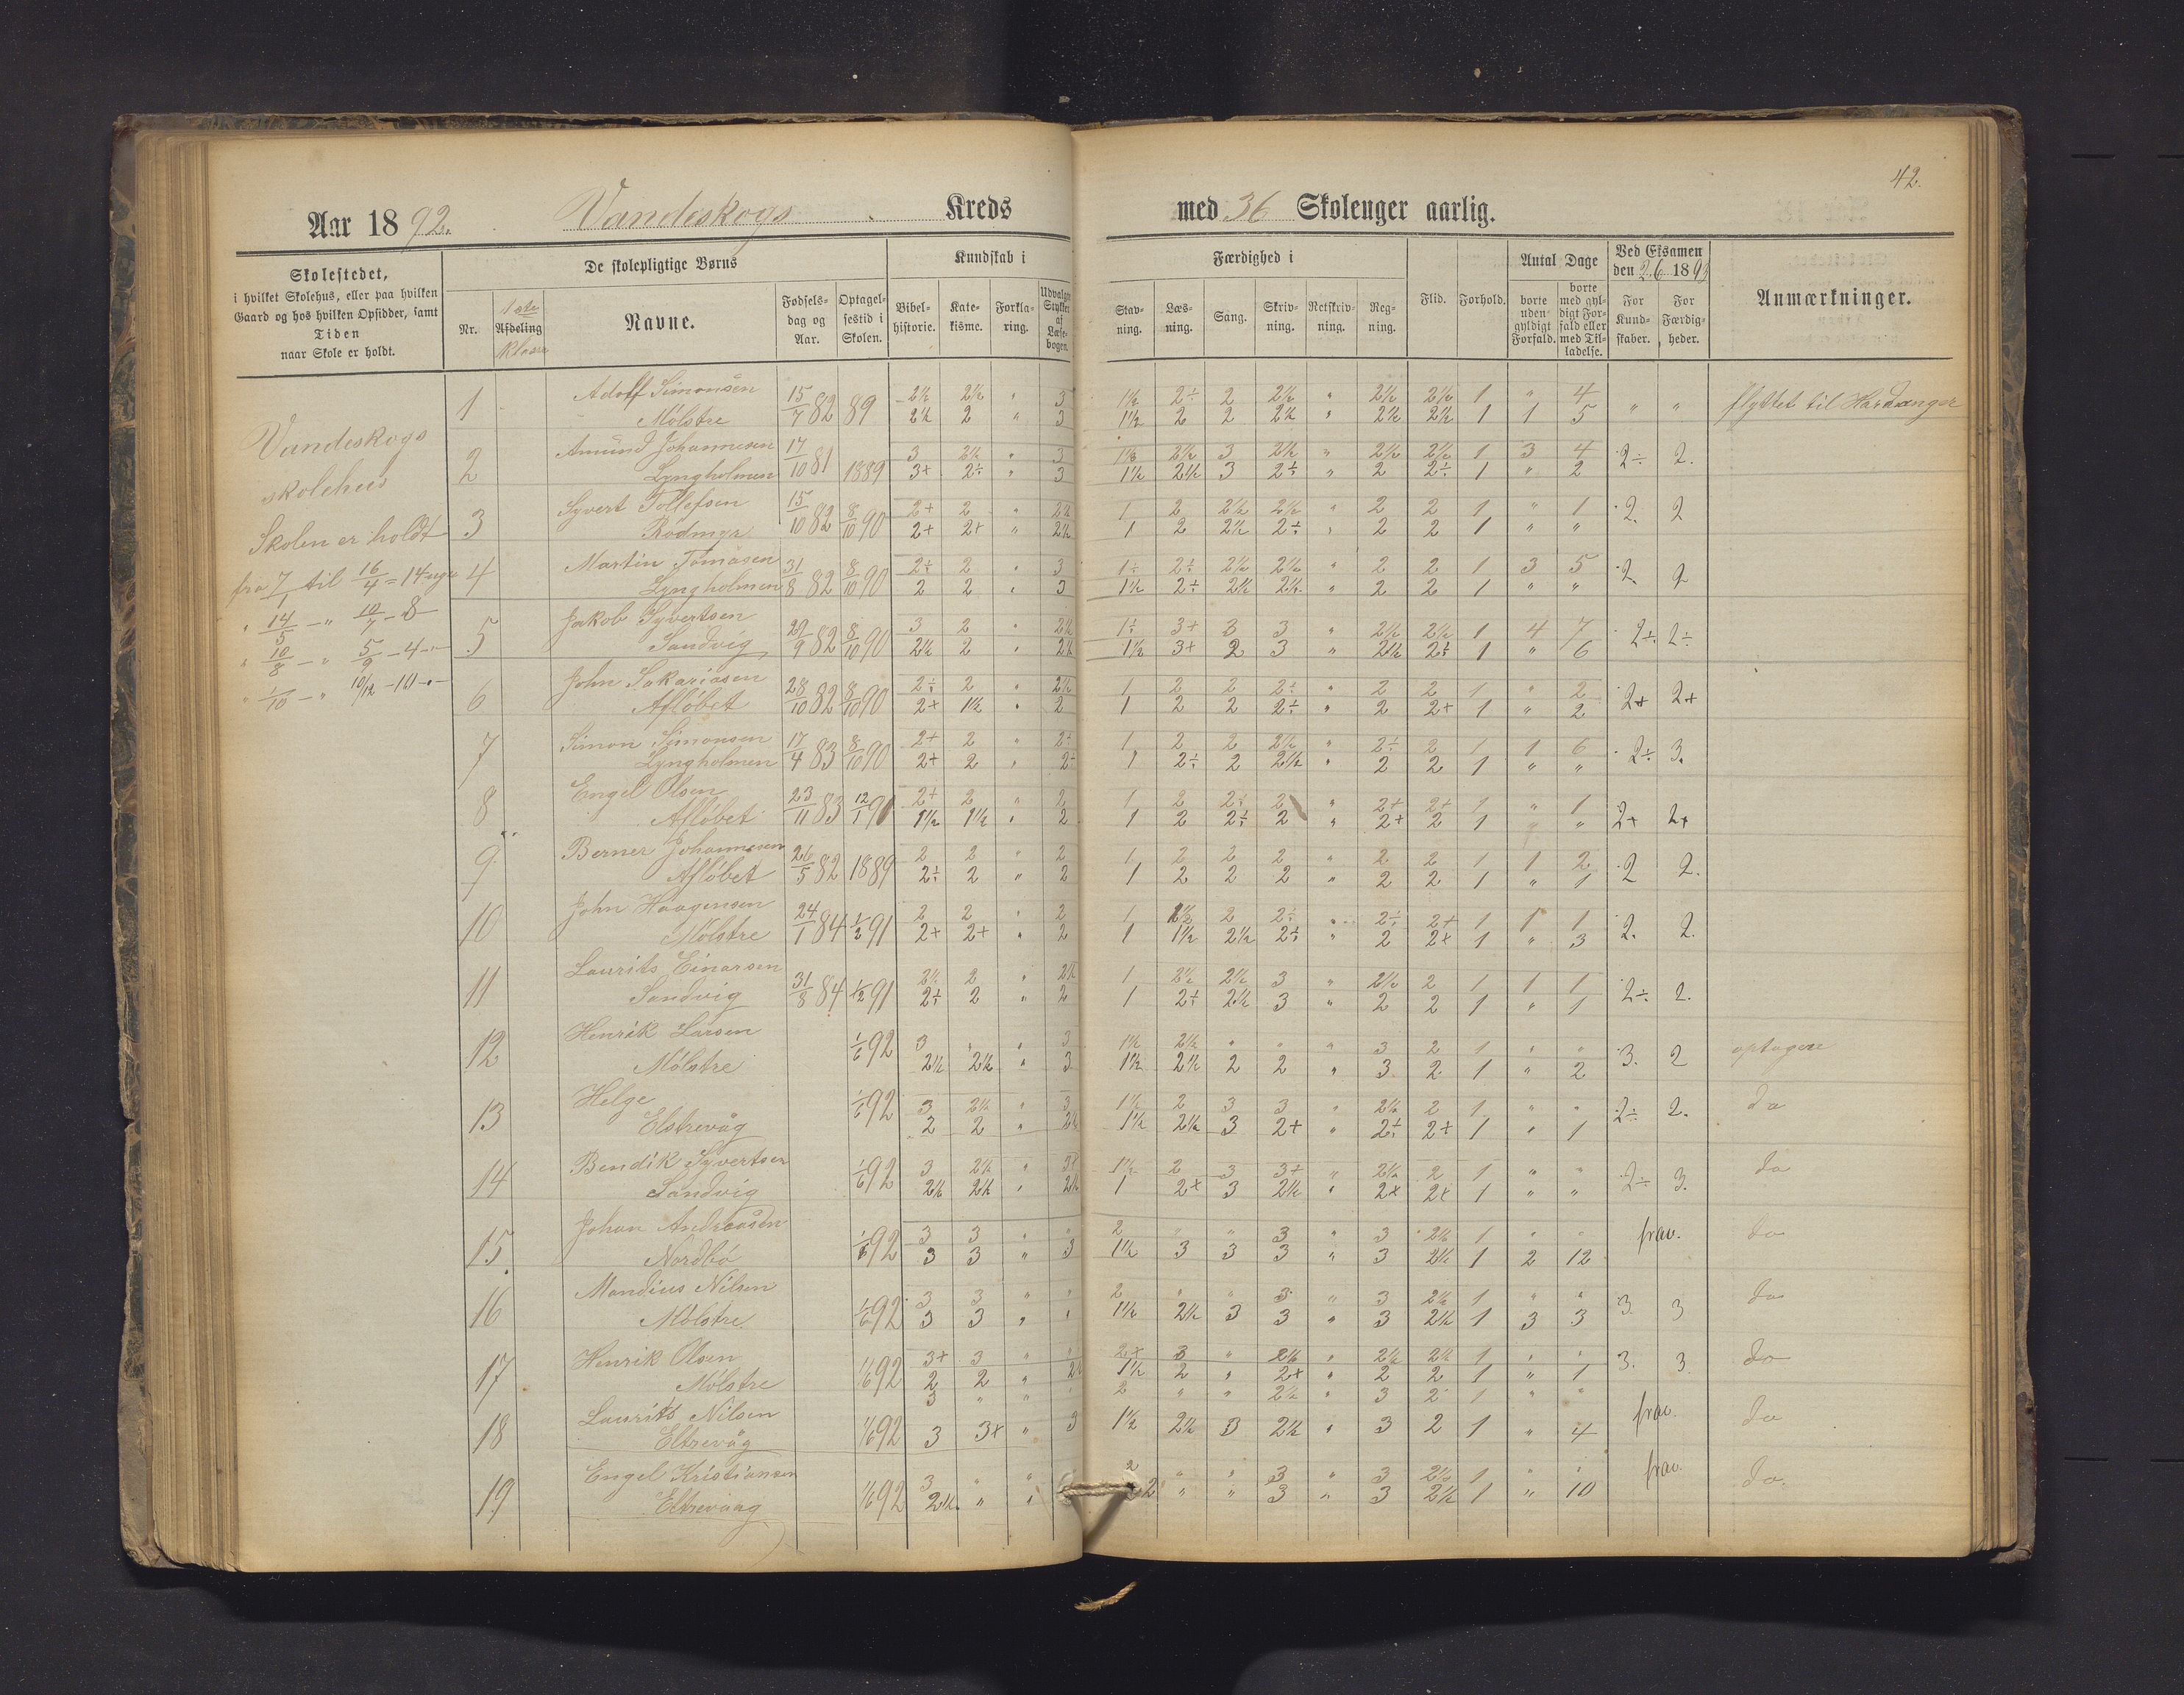 42.
Aar 1892. Vandeskogs Kreds med 36 Skoleuger aarlig.
Skolestedet,
i hvilket Skolehus, eller paa hvilken
Gaard og hos hvilken Opsidder, samt
Tiden
naar Skole er holdt.
De skolepligtige Børns
Nr.
1ste
Afdeling
klasse
Navne.
Fødsels-
dag og
Aar.
Optagel-
sestid i
Skolen.
Kundskab i
Bibel-
historie.
Kate-
kisme.
Forkla-
ring.
Udvalgte
Stykker
af
Læse-
bogen.
Færdighed i
Stav-
ning.
Læs-
ning.
Sang.
Skriv-
ning.
Retskriv-
ning.
Reg-
ning.
Flid.
Forhold.
Antal Dage
borte
uden
gyldigt
Forfald.
borte
med gyl-
digt For-
fald eller
med Til-
ladelse.
Ved Eksamen
den 2/6 1893
For
Kund-
skaber.
For
Færdig-
heder.
Anmærkninger.
Vandeskogs
skolehus
Skolen er holdt
fra 7/1 til 16/4 = 14 uger
" 14/5 - " 10/7 - 8 -
" 10/8 - " 5/9 - 4 - "
" 1/10 - " 10/12 - 10 - " -
1 Adolf Simonsen 15/7 82 89 2½ 2½ " 3 1½ 2÷ 2 2½ " 2½ 2½ 1 " 4 " " flyttet til Hardanger
Mølstre 2½ 2 " 3 1½ 2 2 2½ " 2½ 2½ 1 1 5
2 Amund Johannesen 17/10 81 1889 3 2½ " 3 1½ 2½ 3 2½ " 2½ 2½ 1 3 4 2÷ 2.
Lyngholmen 3+ 2÷ " 3 1½ 2½ 3 2÷ " 2 2÷ 1 " 2
3 Syvert Tollefsen 15/10 82 8/10 90 2+ 2 " 2½ 1 2 2½ 2½ " 2 2 1 " 1 2. 2
Rödmyr 2+ 2+ " 2½ 1 2 2½ 2÷ " 2 2 1 " "
4 Martin Tomasen 31/8 82 8/10 90 2÷ 2 " 3 1÷ 2÷ 2½ 2½ " 2 2 1 3 5 2. 2
Lyngholmen 2 2 " 3 1½ 2÷ 2½ 2½ " 2 2 1 " "
5 Jakob Syvertsen 29/9 82 8/10 90 3 2 " 2½ 1÷ 3+ 3 3 " 2½ 2½ 1 4 7 2÷ 2÷
Sandvig 2½ 2 " 2½ 1½ 3+ 2 3 " 2½ 2÷ 1 " 6
6 John Sakariasen 28/10 82 8/10 90 2÷ 2 " 2½ 1 2 2 2÷ " 2 2 1 " 2 2+ 2+
Afløbet 2+ 1½ " 2 1 2 2 2÷ " 2 2+ 1 " 2
7 Simon Simonsen 17/4 83 8/10 90 2+ 2 " 2÷ 1 2 2 2½ " 2÷ 2 1 1 6 2÷ 3.
Lyngholmen 2+ 2 " 2÷ 1 2÷ 2 2½ " 2 2 1 " "
8 Engel Olsen 23/11 83 12/1 91 2+ 2 " 2 1 2 2÷ 2 " 2+ 2+ 1 " 1 2+ 2+
Afløbet 1½ 1½ " 2 1 2 2÷ 2 " 2+ 2 1 " "
9. Berner Johannesen 26/5 82 1889 2 2 " 2 1 2 2 2 " 2 2 1 1 2 2 2.
Afløbet 2÷ 2 " 2 1 2 2 2 " 2 2 1 " 1
10 John Haagensen 24/1 84 1/2 91 2 2 " 2 1 1½ 2 2÷ " 2÷ 2+ 1 1 1 2. 2.
Mölstre 2+ 2+ " 2 1 1½ 2½ 2÷ " 2 2+ 1 " 3
11 Laurits Einarsen 31/8 84 1/2 91 2½ 2 " 2½ 1 2½ 2½ 3 " 2½ 2 1 1 1 2÷ 2.
Sandvig 2÷ 2 " 2 1 2÷ 2½ 3 " 2 2 1 " 1
12 Henrik Larsen 1/6 92 3 " " 3 1½ 2½ " " " 3 2 1 " " 3. 2 optagen
Mölstre 2½ 2½ " 3 1½ 2½ 2 2 " 3 2 1 " 2
13 Helge 1/6 92 3 2½ " 3 1½ 2 3 3 " 2½ 2 1 " " 2÷ 2. do
Elstrevåg 2 2 " 2½ 1½ 2½ 3 2+ " 2÷ 2+ 1 " 1
14 Bendik Syvertsen 1/6 92 3 2½ " 3+ 1½ 2 3 3+ " 2½ 2 1 " " 2÷ 3. do
Sandvig 2½ 2½ " 2½ 1 2+ 3 2½ " 2+ 2+ 1 " "
15. Johan Andreasen 1/6 92 3 3 " " 2 " " 3 " 3 2½ 1 " " frav. do
Nordbö 3 3 " 3 1½ 3 3 3 " 3 2½ 1 2 12
16 Mandius Nilsen 1/6 92 3 3 " " 2 " " 3 " 3 2½ 1 " " 3. 3 do
Mölstre 3 3 " " 1½ 2½ 3 3 " 3 2½ 1 3 3
17 Henrik Olsen 1/6 92 3+ 3 " " 2+ 3 " 2½ " 2½ 2½ 1 " " 3. 3 do
Mölstre 2 2 " 2½ 1½ 2 " 2+ " 2 2 1 " 1
18 Laurits Nilsen 1/6 92 3 " " " 2 " " 2½ " 3 2 1 " " frav. do
Eltrevåg 3 3+ " 3 1½ 2½ 3 2½ " 3 2 1 " 4
19. Engel Kristiansen 1/6 92 3 " " 2 " " 3 " 3 2½ 1 " " frav. do.
Eltrevaag 2½ " " 2 " " 3 " 3 2½ 1 " 10